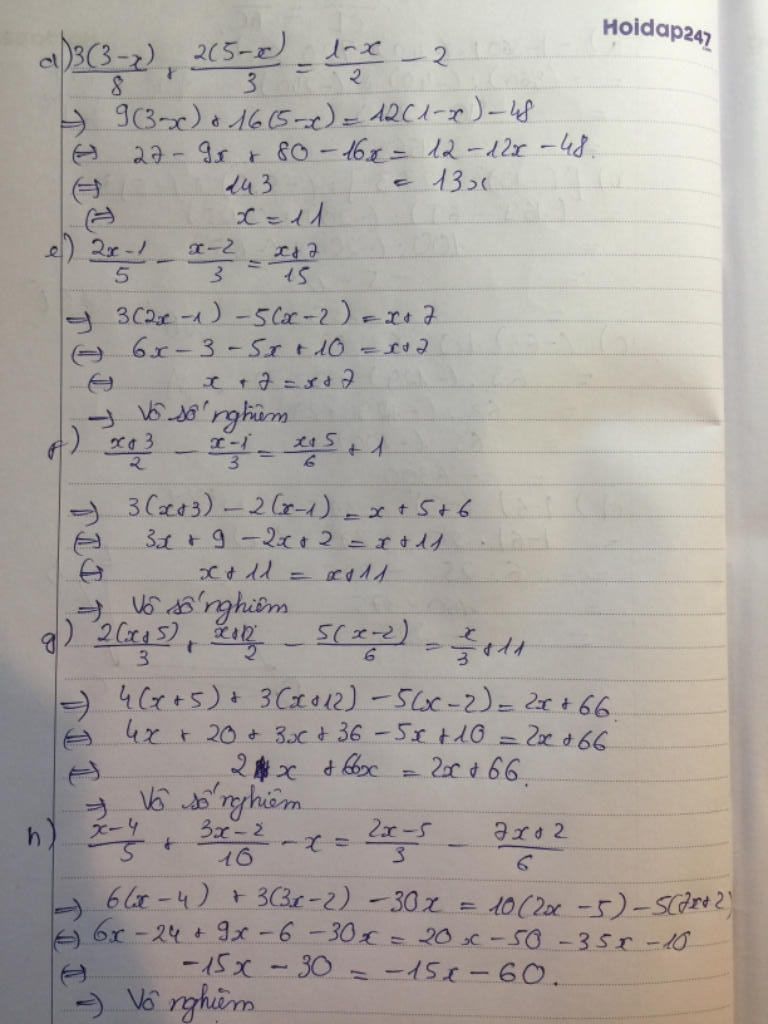 Hoidap247
d) 3(3-x)/8 + 2(5-x)/3 = 1-x/2 - 2
=> 9(3-x) + 16(5-x) = 12(1-x) - 48
<=> 27 - 9x + 80 - 16x = 12 - 12x - 48.
<=> 143 = 13x
<=> x = 11
e) 2x-1/5 - x-2/3 = x+7/15
=> 3(2x-1) - 5(x-2) = x+7
<=> 6x - 3 - 5x + 10 = x+7
<=> x + 7 = x+7
=> Vô số nghiệm
f) x+3/2 - x-1/3 = x+5/6 + 1
=> 3(x+3) - 2(x-1) = x + 5 + 6
<=> 3x + 9 - 2x + 2 = x + 11
<=> x + 11 = x + 11
=> Vô số nghiệm
g) 2(x+5)/3 + x+12/2 - 5(x-2)/6 = x/3 + 11
=> 4(x+5) + 3(x+12) - 5(x-2) = 2x + 66.
<=> 4x + 20 + 3x + 36 - 5x + 10 = 2x + 66
<=> 2x + 66x = 2x + 66.
=> Vô số nghiệm
h) x-4/5 + 3x-2/10 - x = 2x-5/3 - 7x+2/6
=> 6(x-4) + 3(3x-2) - 30x = 10(2x-5) - 5(7x+2)
<=> 6x - 24 + 9x - 6 - 30x = 20x - 50 - 35x - 10
<=> -15x - 30 = -15x - 60.
=> Vô nghiệm